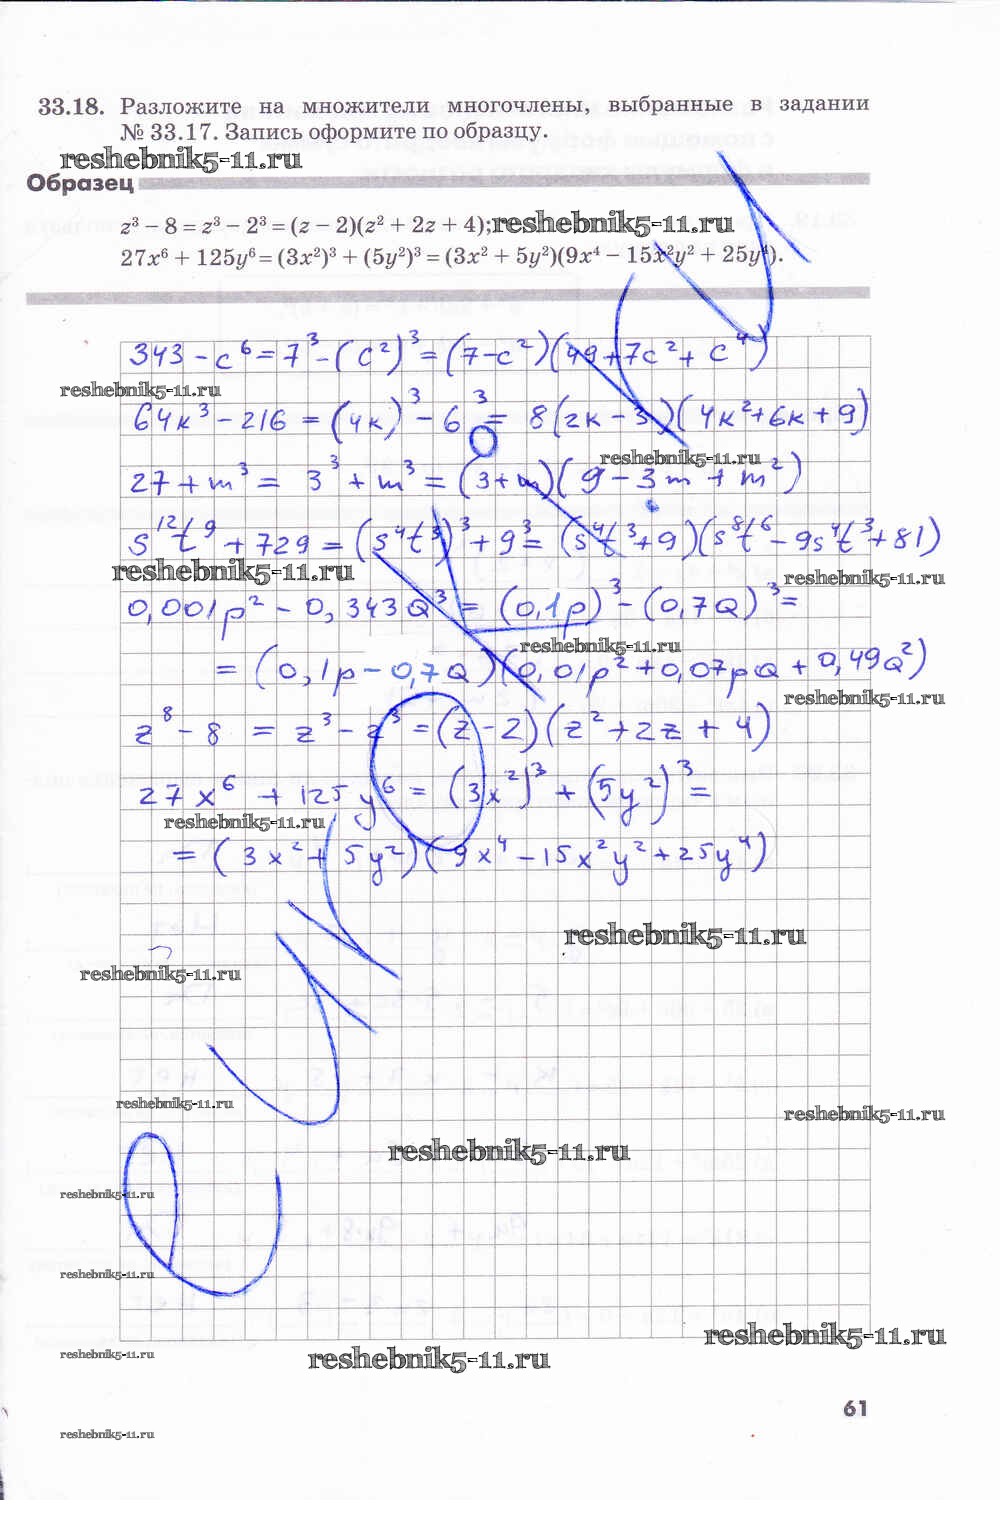 33.18. Разложите на множители многочлены, выбранные в задании
№ 33.17. Запись оформите по образцу.
reshebnik5-11.ru
Образец
z³ − 8 = z³ − 2³ = (z − 2)(z² + 2z + 4); reshebnik5-11.ru
27x⁶ + 125y⁶ = (3x²)³ + (5y²)³ = (3x² + 5y²)(9x⁴ − 15x²y² + 25y⁴).
343 − c⁶ = 7³ − (c²)³ = (7 − c²)(49 + 7c² + c⁴)
reshebnik5-11.ru
64k³ − 216 = (4k)³ − 6³ = 8(2k − 3)(4k² + 6k + 9)
reshebnik5-11.ru
27 + m³ = 3³ + m³ = (3 + m)(9 − 3m + m²)
s¹²t⁹ + 729 = (s⁴t³)³ + 9³ = (s⁴t³ + 9)(s⁸t⁶ − 9s⁴t³ + 81)
reshebnik5-11.ru
reshebnik5-11.ru
0,001p² − 0,343Q³ = (0,1p)³ − (0,7Q)³ =
reshebnik5-11.ru
= (0,1p − 0,7Q)(0,01p² + 0,07pQ + 0,49Q²)
reshebnik5-11.ru
z⁸ − 8 = z³ − z³ = (z − 2)(z² + 2z + 4)
27x⁶ + 125y⁶ = (3x²)³ + (5y²)³ =
reshebnik5-11.ru
= (3x² + 5y²)(9x⁴ − 15x²y² + 25y⁴)
reshebnik5-11.ru
reshebnik5-11.ru
reshebnik5-11.ru
reshebnik5-11.ru
reshebnik5-11.ru
reshebnik5-11.ru
reshebnik5-11.ru
reshebnik5-11.ru
reshebnik5-11.ru
reshebnik5-11.ru
61
reshebnik5-11.ru